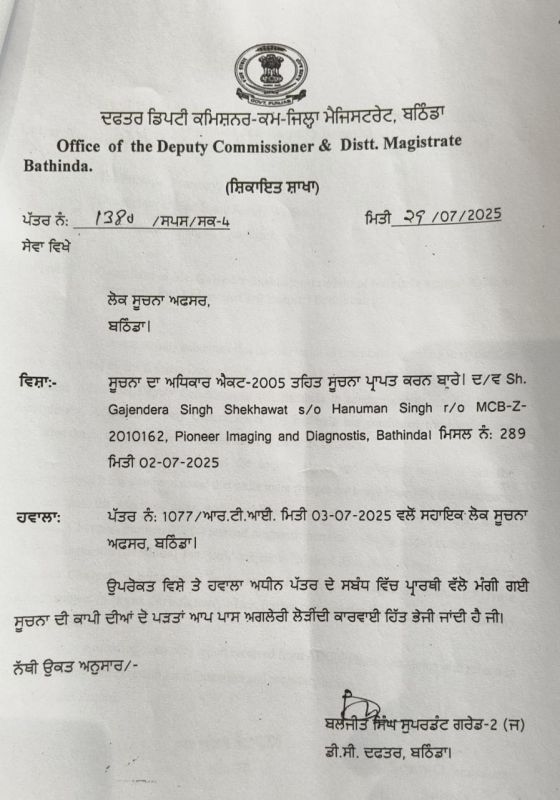 GOVT. PUNJAB
ਦਫਤਰ ਡਿਪਟੀ ਕਮਿਸ਼ਨਰ-ਕਮ-ਜਿਲ੍ਹਾ ਮੈਜਿਸਟਰੇਟ, ਬਠਿੰਡਾ
Office of the Deputy Commissioner & Distt. Magistrate
Bathinda.
(ਸ਼ਿਕਾਇਤ ਸ਼ਾਖਾ)
ਪੱਤਰ ਨੰ: 1380 /ਸਪਸ/ਸਕ-4 ਮਿਤੀ 29/07/2025
ਸੇਵਾ ਵਿਖੇ
ਲੋਕ ਸੂਚਨਾ ਅਫਸਰ,
ਬਠਿੰਡਾ।
ਵਿਸ਼ਾ:- ਸੂਚਨਾ ਦਾ ਅਧਿਕਾਰ ਐਕਟ-2005 ਤਹਿਤ ਸੂਚਨਾ ਪ੍ਰਾਪਤ ਕਰਨ ਬਾਰੇ। ਦ/ਵ Sh.
Gajendera Singh Shekhawat s/o Hanuman Singh r/o MCB-Z-
2010162, Pioneer Imaging and Diagnostis, Bathinda। ਮਿਸਲ ਨੰ: 289
ਮਿਤੀ 02-07-2025
ਹਵਾਲਾ: ਪੱਤਰ ਨੰ: 1077/ਆਰ.ਟੀ.ਆਈ. ਮਿਤੀ 03-07-2025 ਵਲੋਂ ਸਹਾਇਕ ਲੋਕ ਸੂਚਨਾ
ਅਫਸਰ, ਬਠਿੰਡਾ।
ਉਪਰੋਕਤ ਵਿਸ਼ੇ ਤੇ ਹਵਾਲਾ ਅਧੀਨ ਪੱਤਰ ਦੇ ਸਬੰਧ ਵਿੱਚ ਪ੍ਰਾਰਥੀ ਵੱਲੋ ਮੰਗੀ ਗਈ
ਸੂਚਨਾ ਦੀ ਕਾਪੀ ਦੀਆਂ ਦੋ ਪੜਤਾਂ ਆਪ ਪਾਸ ਅਗਲੇਰੀ ਲੋੜੀਂਦੀ ਕਾਰਵਾਈ ਹਿੱਤ ਭੇਜੀ ਜਾਂਦੀ ਹੈ ਜੀ।
ਨੱਥੀ ਉਕਤ ਅਨੁਸਾਰ/-
ਬਲਜੀਤ ਸਿੰਘ ਸੁਪਰਡੰਟ ਗਰੇਡ-2 (ਜ)
ਡੀ.ਸੀ. ਦਫਤਰ, ਬਠਿੰਡਾ।